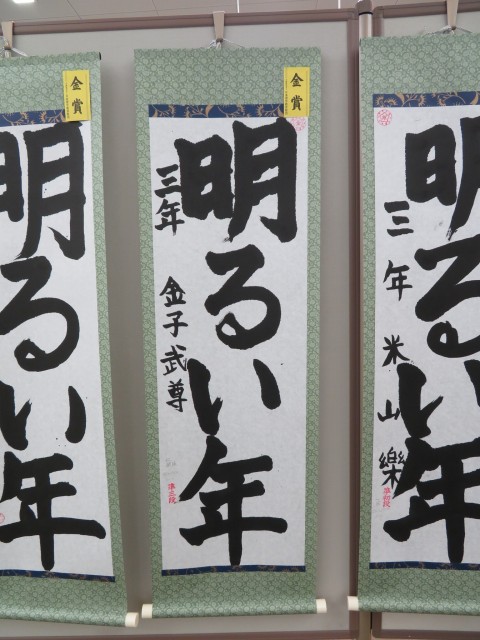 金賞
明るい年
金賞
明るい年
三年 金子武尊
明るい年
三年 米山樂